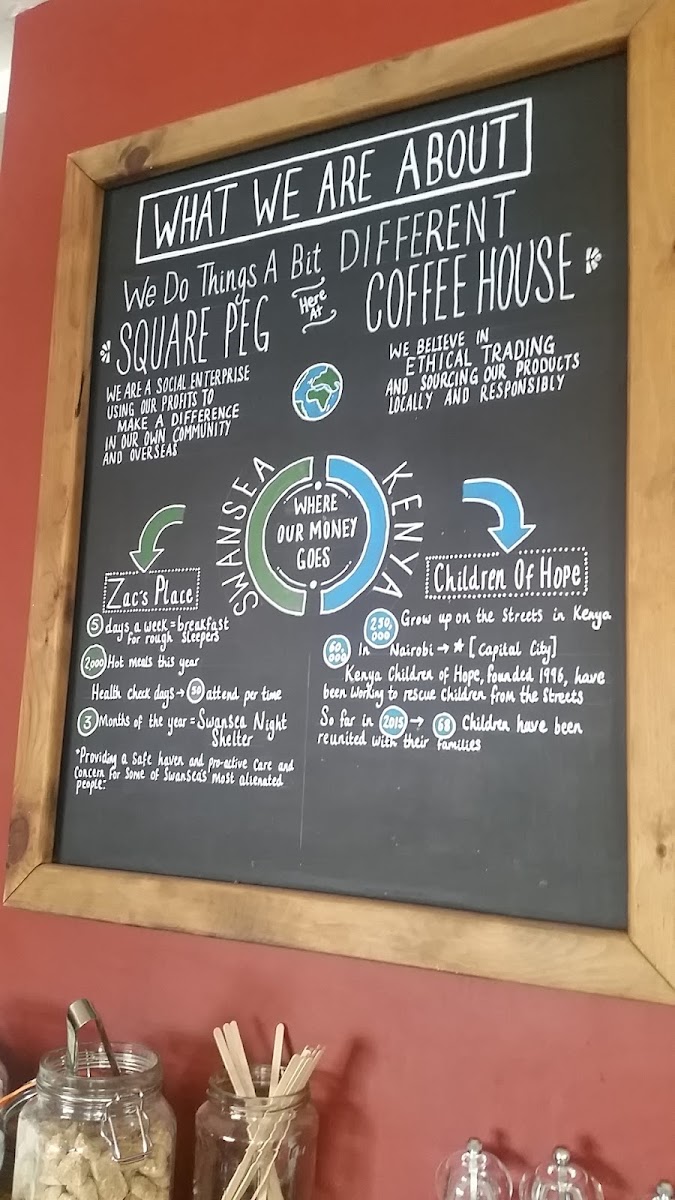 WHAT WE ARE ABOUT
We Do Things A Bit DIFFERENT
Here At
SQUARE PEG
COFFEE HOUSE
WE ARE A SOCIAL ENTERPRISE
USING OUR PROFITS TO
MAKE A DIFFERENCE
IN OUR OWN COMMUNITY
AND OVERSEAS
WE BELIEVE IN
ETHICAL TRADING
AND SOURCING OUR PRODUCTS
LOCALLY AND RESPONSIBLY
SWANSEA
WHERE
OUR MONEY
GOES
KENYA
Zac's Place
5 days a week = breakfast
for rough sleepers
2000 Hot meals this year
Health check days → 50 attend per time
3 Months of the year = Swansea Night
Shelter
"Providing a safe haven and pro-active care and
concern for some of Swansea's most alienated
people."
Children Of Hope
250,000 Grow up on the streets in Kenya
60,000 In Nairobi → ★ [Capital City]
Kenya Children of Hope, founded 1996, have
been working to rescue children from the streets
So far in 2015 → 68 Children have been
reunited with their families